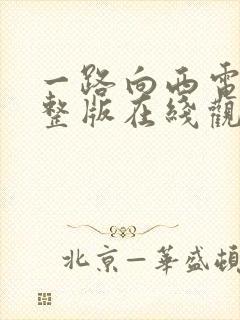 一路向西電
整版在綫觀
北京—華盛頓